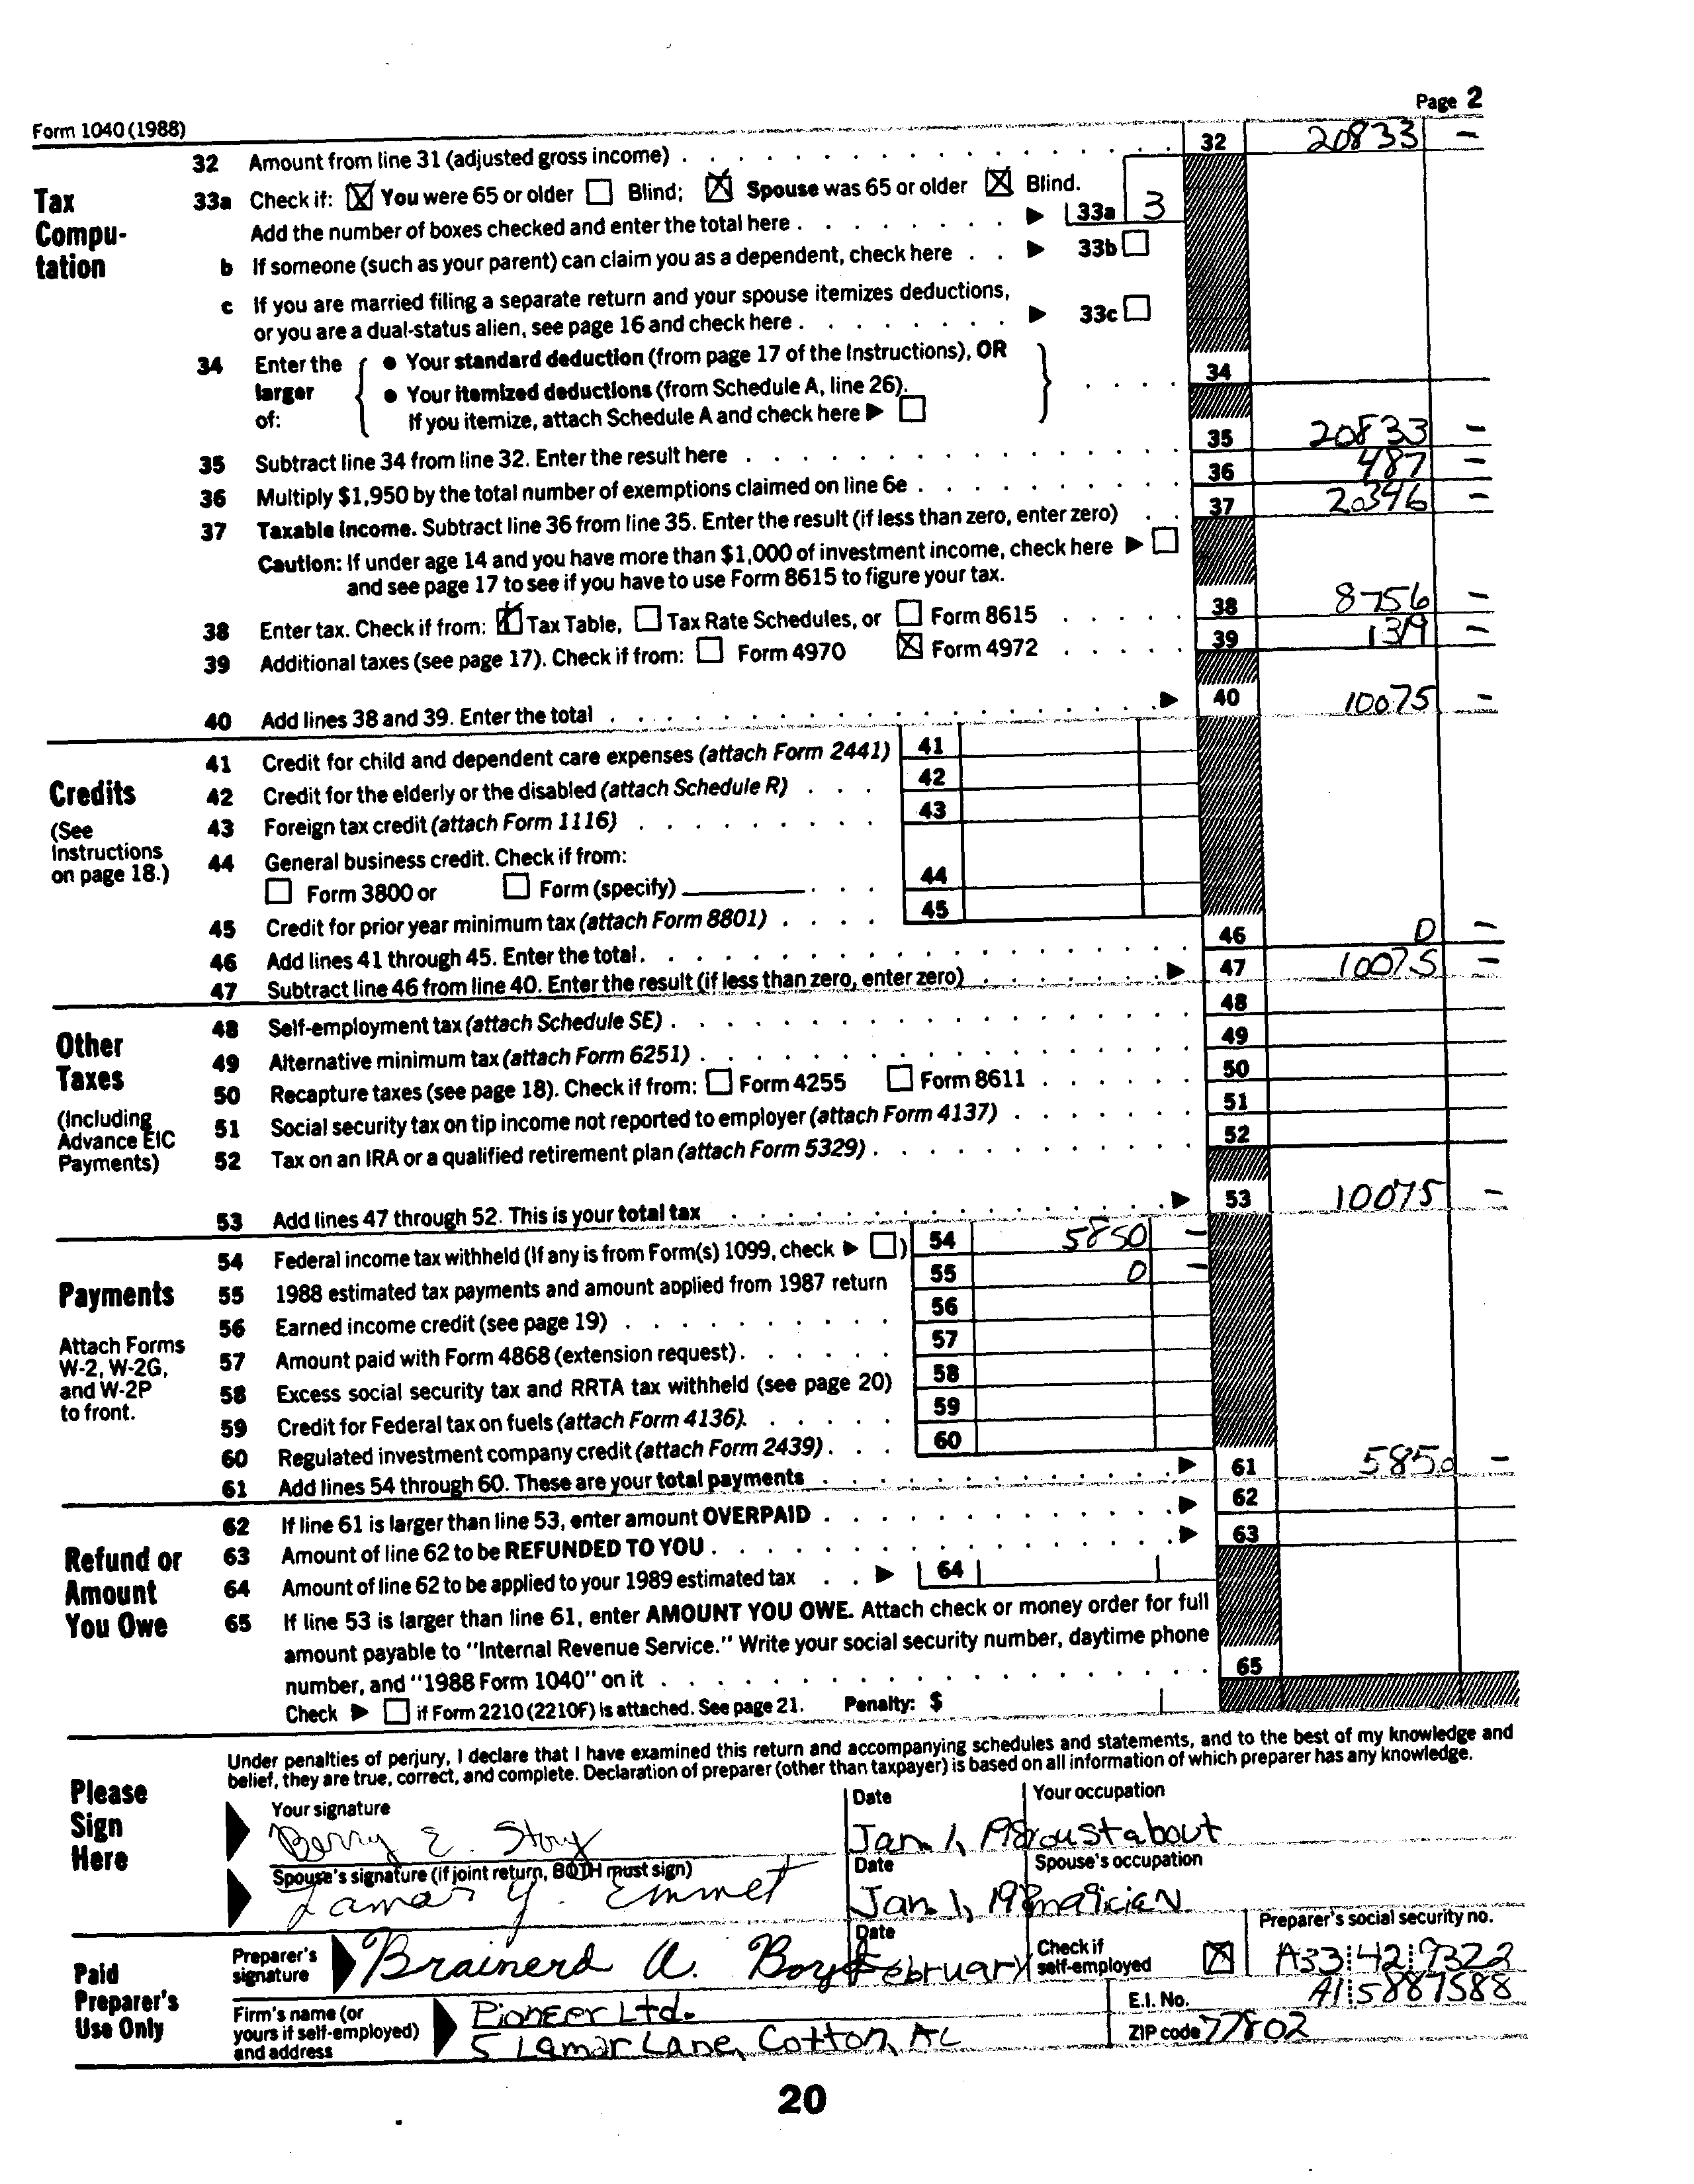 Page 2
Form 1040 (1988)
32 Amount from line 31 (adjusted gross income) 32 20833 –
Tax Compu-tation
33a Check if: ☒ You were 65 or older ☐ Blind; ☒ Spouse was 65 or older ☒ Blind.
Add the number of boxes checked and enter the total here ▶ 33a 3
b If someone (such as your parent) can claim you as a dependent, check here ▶ 33b ☐
c If you are married filing a separate return and your spouse itemizes deductions,
or you are a dual-status alien, see page 16 and check here ▶ 33c ☐
34 Enter the larger of: { ● Your standard deduction (from page 17 of the Instructions), OR
● Your itemized deductions (from Schedule A, line 26).
If you itemize, attach Schedule A and check here ▶ ☐ } 34
35 Subtract line 34 from line 32. Enter the result here 35 20833 –
36 Multiply $1,950 by the total number of exemptions claimed on line 6e 36 487 –
37 Taxable income. Subtract line 36 from line 35. Enter the result (if less than zero, enter zero) 37 20346 –
Caution: If under age 14 and you have more than $1,000 of investment income, check here ▶ ☐
and see page 17 to see if you have to use Form 8615 to figure your tax.
38 Enter tax. Check if from: ☒ Tax Table, ☐ Tax Rate Schedules, or ☐ Form 8615 38 8756 –
39 Additional taxes (see page 17). Check if from: ☐ Form 4970 ☒ Form 4972 39 1319 –
40 Add lines 38 and 39. Enter the total ▶ 40 10075 –
Credits
(See Instructions on page 18.)
41 Credit for child and dependent care expenses (attach Form 2441) 41
42 Credit for the elderly or the disabled (attach Schedule R) 42
43 Foreign tax credit (attach Form 1116) 43
44 General business credit. Check if from:
☐ Form 3800 or ☐ Form (specify) 44
45 Credit for prior year minimum tax (attach Form 8801) 45
46 Add lines 41 through 45. Enter the total 46 0 –
47 Subtract line 46 from line 40. Enter the result (if less than zero, enter zero) ▶ 47 10075 –
Other Taxes
(Including Advance EIC Payments)
48 Self-employment tax (attach Schedule SE) 48
49 Alternative minimum tax (attach Form 6251) 49
50 Recapture taxes (see page 18). Check if from: ☐ Form 4255 ☐ Form 8611 50
51 Social security tax on tip income not reported to employer (attach Form 4137) 51
52 Tax on an IRA or a qualified retirement plan (attach Form 5329) 52
53 Add lines 47 through 52. This is your total tax ▶ 53 10075 –
Payments
Attach Forms W-2, W-2G, and W-2P to front.
54 Federal income tax withheld (If any is from Form(s) 1099, check ▶ ☐) 54 5850 –
55 1988 estimated tax payments and amount applied from 1987 return 55 0 –
56 Earned income credit (see page 19) 56
57 Amount paid with Form 4868 (extension request) 57
58 Excess social security tax and RRTA tax withheld (see page 20) 58
59 Credit for Federal tax on fuels (attach Form 4136) 59
60 Regulated investment company credit (attach Form 2439) 60
61 Add lines 54 through 60. These are your total payments ▶ 61 5850 –
Refund or Amount You Owe
62 If line 61 is larger than line 53, enter amount OVERPAID ▶ 62
63 Amount of line 62 to be REFUNDED TO YOU ▶ 63
64 Amount of line 62 to be applied to your 1989 estimated tax ▶ 64
65 If line 53 is larger than line 61, enter AMOUNT YOU OWE. Attach check or money order for full
amount payable to "Internal Revenue Service." Write your social security number, daytime phone
number, and "1988 Form 1040" on it 65
Check ▶ ☐ if Form 2210 (2210F) is attached. See page 21. Penalty: $
Please Sign Here
Under penalties of perjury, I declare that I have examined this return and accompanying schedules and statements, and to the best of my knowledge and
belief, they are true, correct, and complete. Declaration of preparer (other than taxpayer) is based on all information of which preparer has any knowledge.
Your signature Date Your occupation
Berry E. Story Jan. 1, roustabout
Spouse's signature (if joint return, BOTH must sign) Date Spouse's occupation
Lamar Y. Emmet Jan. 1,
Paid Preparer's Use Only
Preparer's signature Brainerd A. Boyd Date February Check if self-employed ☒ Preparer's social security no. A33 42 9322
Firm's name (or yours if self-employed) and address Pioneer Ltd. E.I. No. A1 5887588
5 Lamar Lane, Cotton, AL ZIP code 77802
20